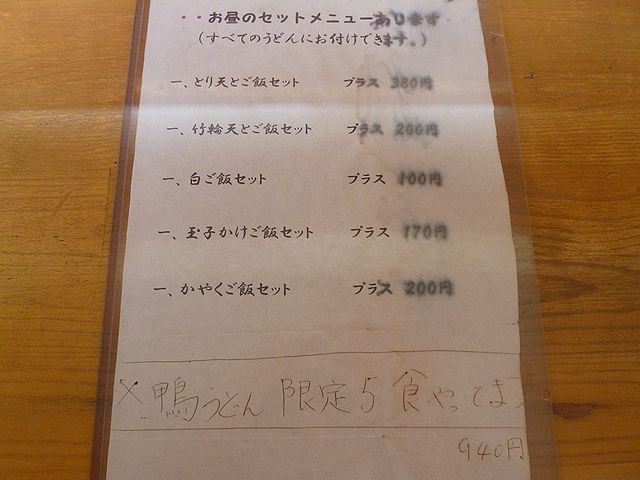 ・・お昼のセットメニューあります
(すべてのうどんにお付けできます。)
一、とり天とご飯セット プラス 380円
一、竹輪天とご飯セット プラス 200円
一、白ご飯セット プラス 100円
一、玉子かけご飯セット プラス 170円
一、かやくご飯セット プラス 200円
× 鴨うどん 限定5食やってます
940円